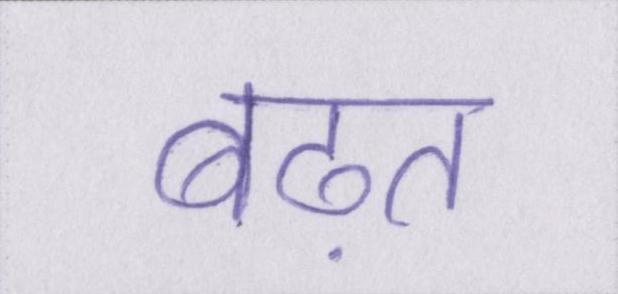 बढ़त